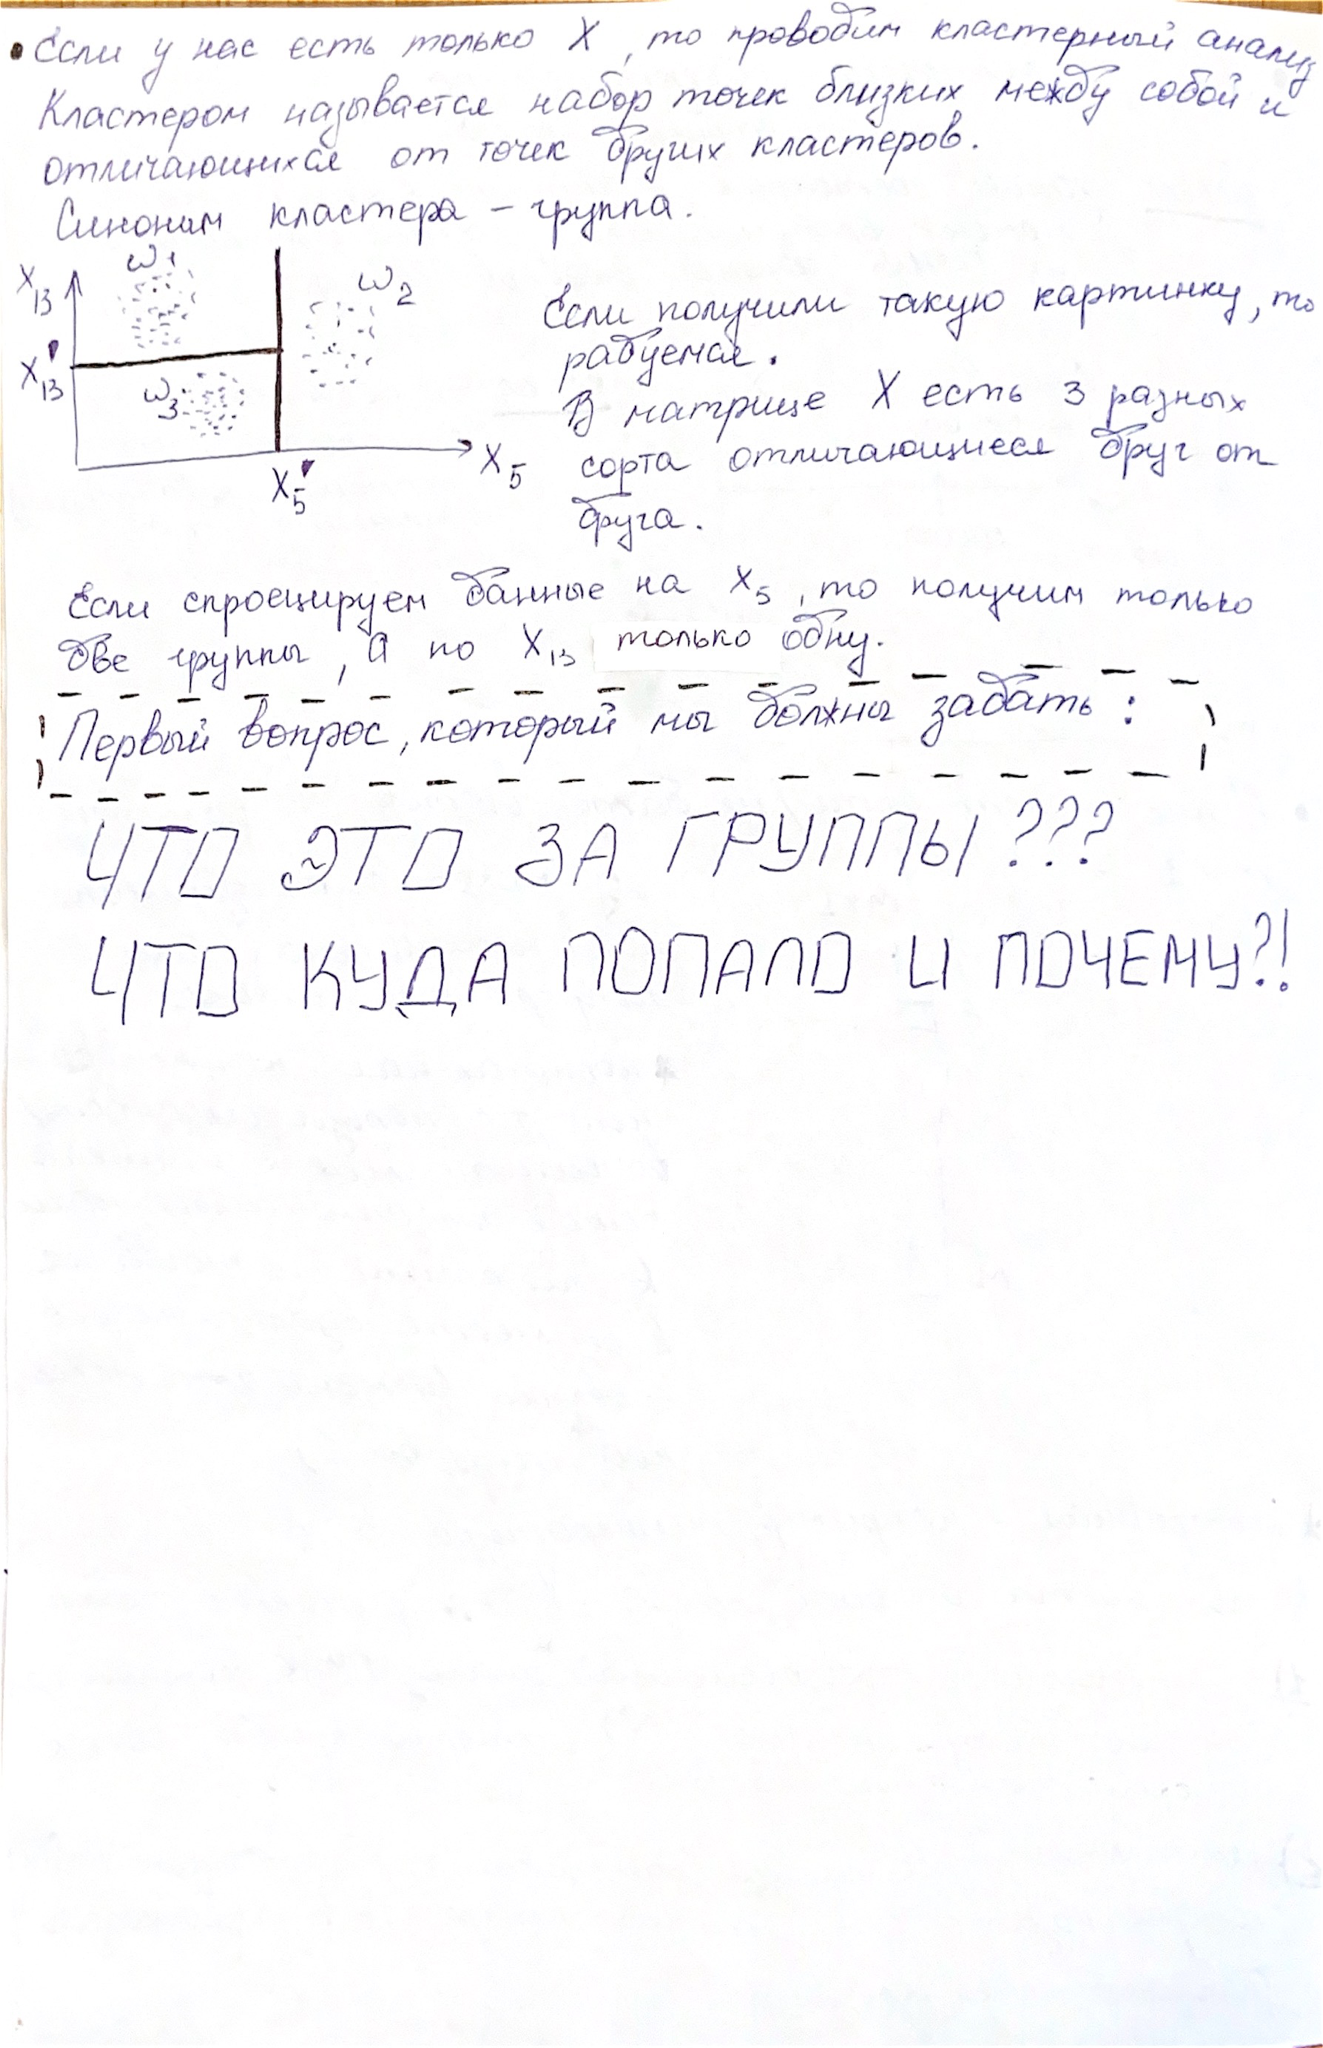 • Если у нас есть только X, то проводим кластерный анализ
Кластером называется набор точек близких между собой и
отличающихся от точек других кластеров.
Синоним кластера – группа.
X13
ω1
ω2
X'13
ω3
X5
X'5
Если получили такую картинку, то
радуемся.
В матрице X есть 3 разных
сорта отличающиеся друг от
друга.
Если спроецируем данные на X5, то получим только
две группы, а по X13 только одну.
Первый вопрос, который мы должны задать:
ЧТО ЭТО ЗА ГРУППЫ???
ЧТО КУДА ПОПАЛО И ПОЧЕМУ?!